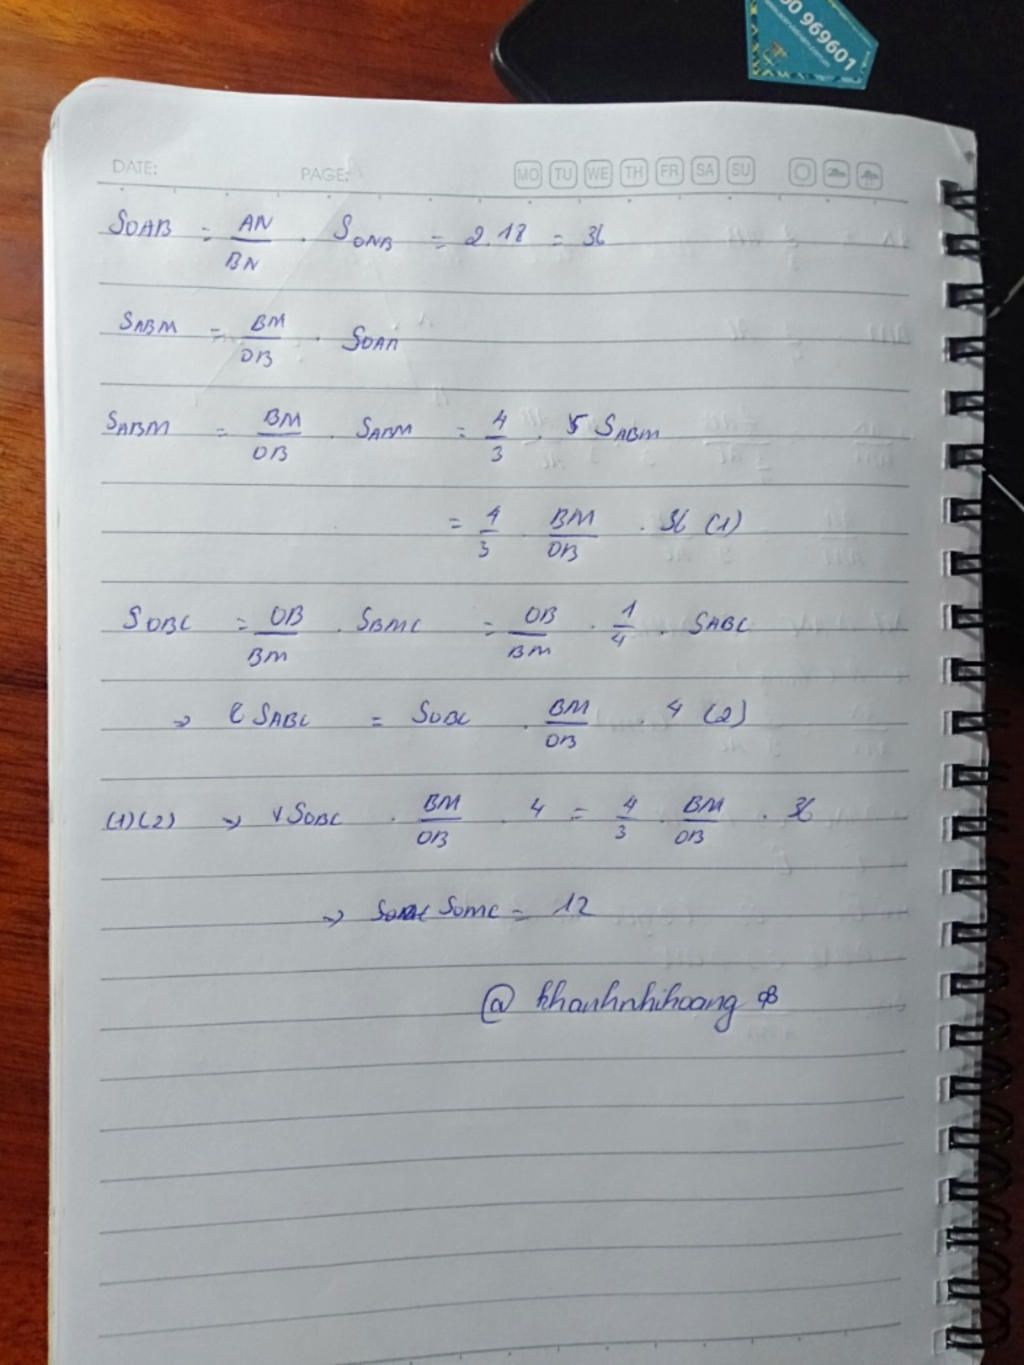 90 969601
DATE: PAGE: MO TU WE TH FR SA SU
SOAB = AN/BN . SONB = 2.18 = 36
SABM = BM/OB . SOAB
SABM = BM/OB . SABM = 4/3 . SABM
= 4/3 . BM/OB . 36 (1)
SOBC = OB/BM . SBMC = OB/BM . 1/4 . SABC
=> SABC = SOBC . BM/OB . 4 (2)
(1)(2) => SOBC . BM/OB . 4 = 4/3 . BM/OB . 36
=> SOMC = 12
@ khanhnhihoang